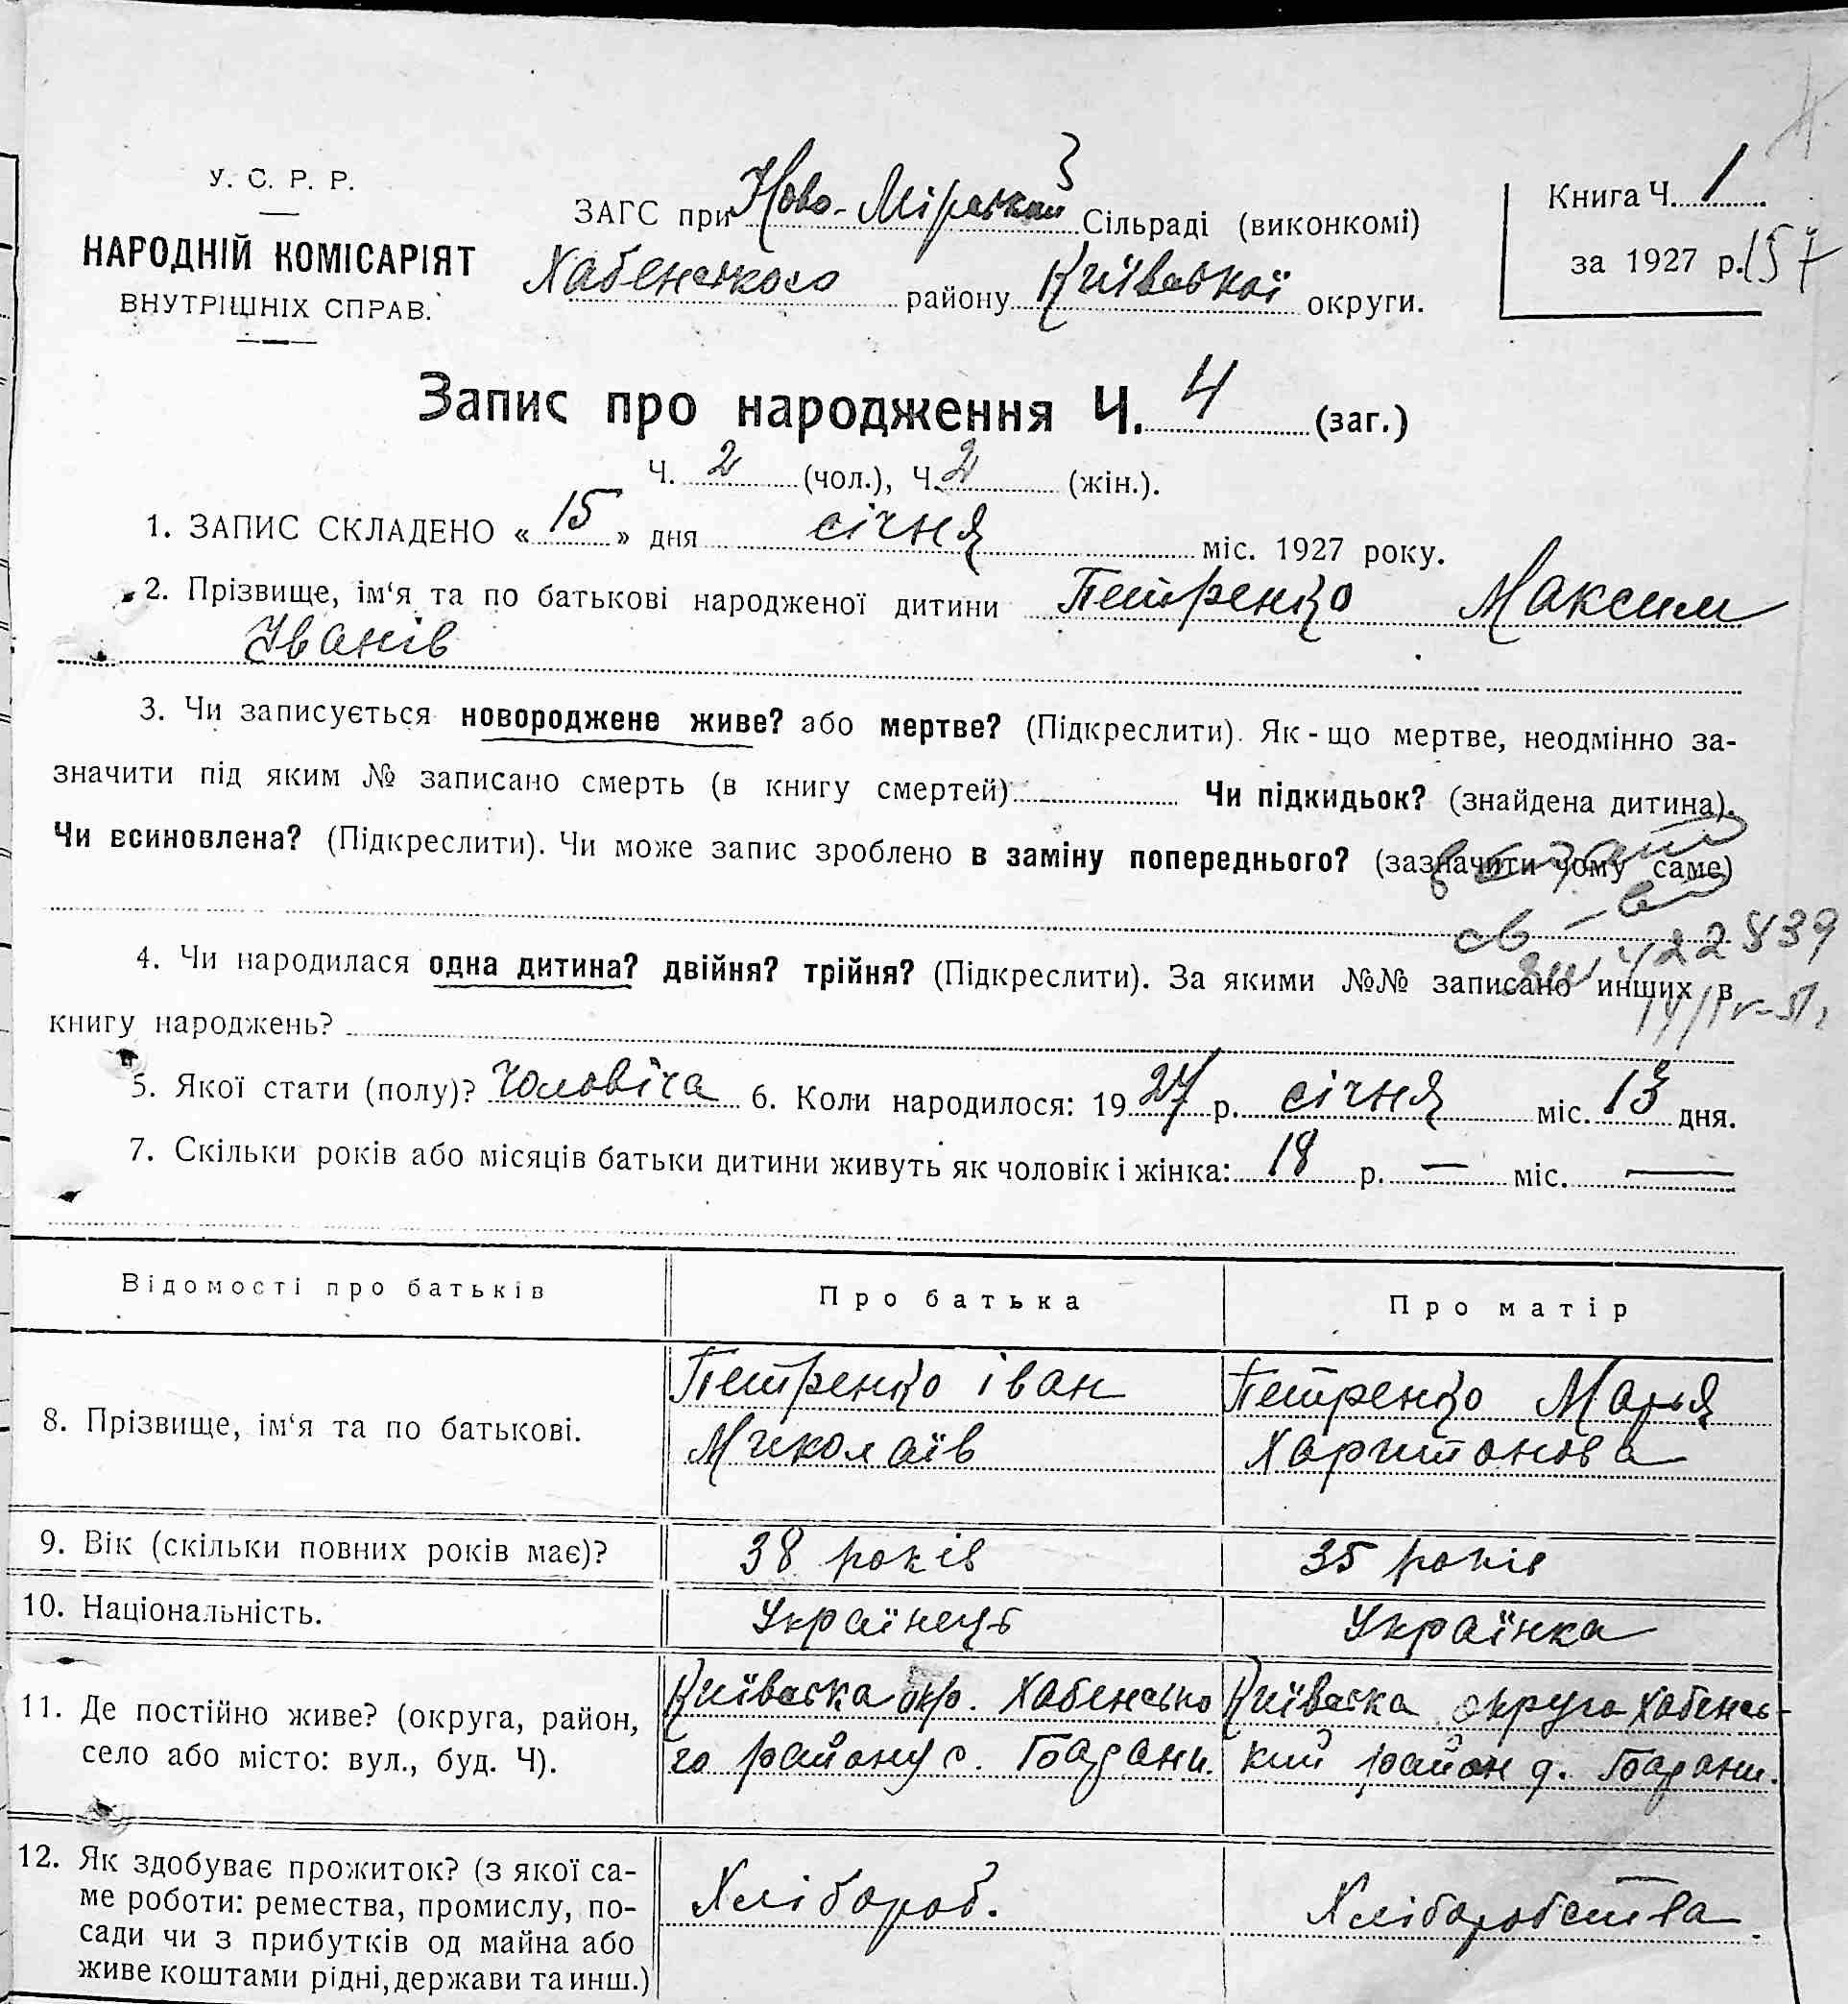 У. С. Р. Р.
НАРОДНІЙ КОМІСАРІЯТ
ВНУТРІШНІХ СПРАВ.
ЗАГС при Ново-Мірській Сільраді (виконкомі)
Хабенського району Київської округи.
Книга Ч. 1
за 1927 р. 157
Запис про народження Ч. 4 (заг.)
Ч. 2 (чол.), Ч. 2 (жін.).
1. ЗАПИС СКЛАДЕНО « 15 » дня січня міс. 1927 року.
2. Прізвище, ім‘я та по батькові народженої дитини Петренко Максим
Іванів
3. Чи записується новороджене живе? або мертве? (Підкреслити). Як-що мертве, неодмінно за-
значити під яким № записано смерть (в книгу смертей) Чи підкидьок? (знайдена дитина).
Чи всиновлена? (Підкреслити). Чи може запис зроблено в заміну попереднього? (зазначити чому саме)
4. Чи народилася одна дитина? двійня? трійня? (Підкреслити). За якими №№ записано инших в
книгу народжень?
5. Якої стати (полу)? Чоловіча 6. Коли народилося: 1927 р. січня міс. 13 дня.
7. Скільки років або місяців батьки дитини живуть як чоловік і жінка: 18 р. — міс. —
Відомості про батьків Про батька Про матір
8. Прізвище, ім‘я та по батькові.
Петренко іван
Миколаїв
Петренко Марья
Харитонова
9. Вік (скільки повних років має)? 38 років 35 років
10. Національність. Українець Українка
11. Де постійно живе? (округа, район,
село або місто: вул., буд. Ч).
Київська окр. Хабенсько
го району с. Барани.
Київська округа Хабенсь-
кий район д. Барани.
12. Як здобуває прожиток? (з якої са-
ме роботи: ремества, промислу, по-
сади чи з прибутків од майна або
живе коштами рідні, держави та инш.)
Хлібороб.
Хліборобства.